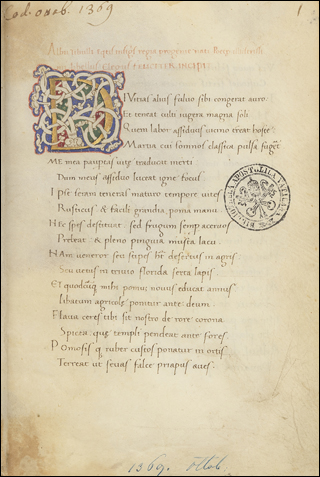 Cod. ottob. 1369
1
IVitias alius fuluo sibi congerat auro
Et teneat culti iugera magna soli
Quem labor assiduus uicino terreat hoste
Martia cui somnos classica pulsa fugent
ME mea paupertas uitae traducat inerti
Dum meus assiduo luceat igne focus
Ipse seram teneras maturo tempore uites
Rusticus & facili grandia poma manu
Nec spes destituat sed frugum semper aceruos
Prebeat & pleno pinguia musta lacu
NAm ueneror seu stipes habet desertus in agris
Seu uetus in triuio florida serta lapis
Et quodcunq mihi pomum nouus educat annus
libatum agricole ponitur ante deum
Flaua ceres tibi sit nostro de rore corona
Spicea que templi pendeat ante fores
POmosisq ruber custos ponatur in ortis
Terreat ut seuas falce priapus aues.
BIBLIOTHECA APOSTOLICA VATICANA
1369. ottob.